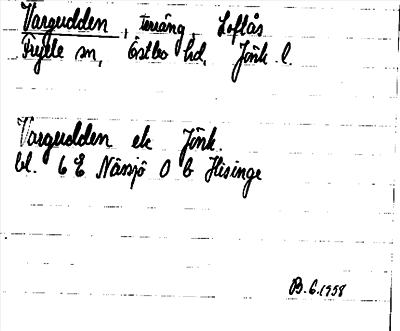 Vargudden, terräng, Loftås
Fryele sn, Östbo hd, Jönk. l.
Vargudden ek Jönk.
bl. 6 E Nässjö 0 b Hisinge
B. G. 1958